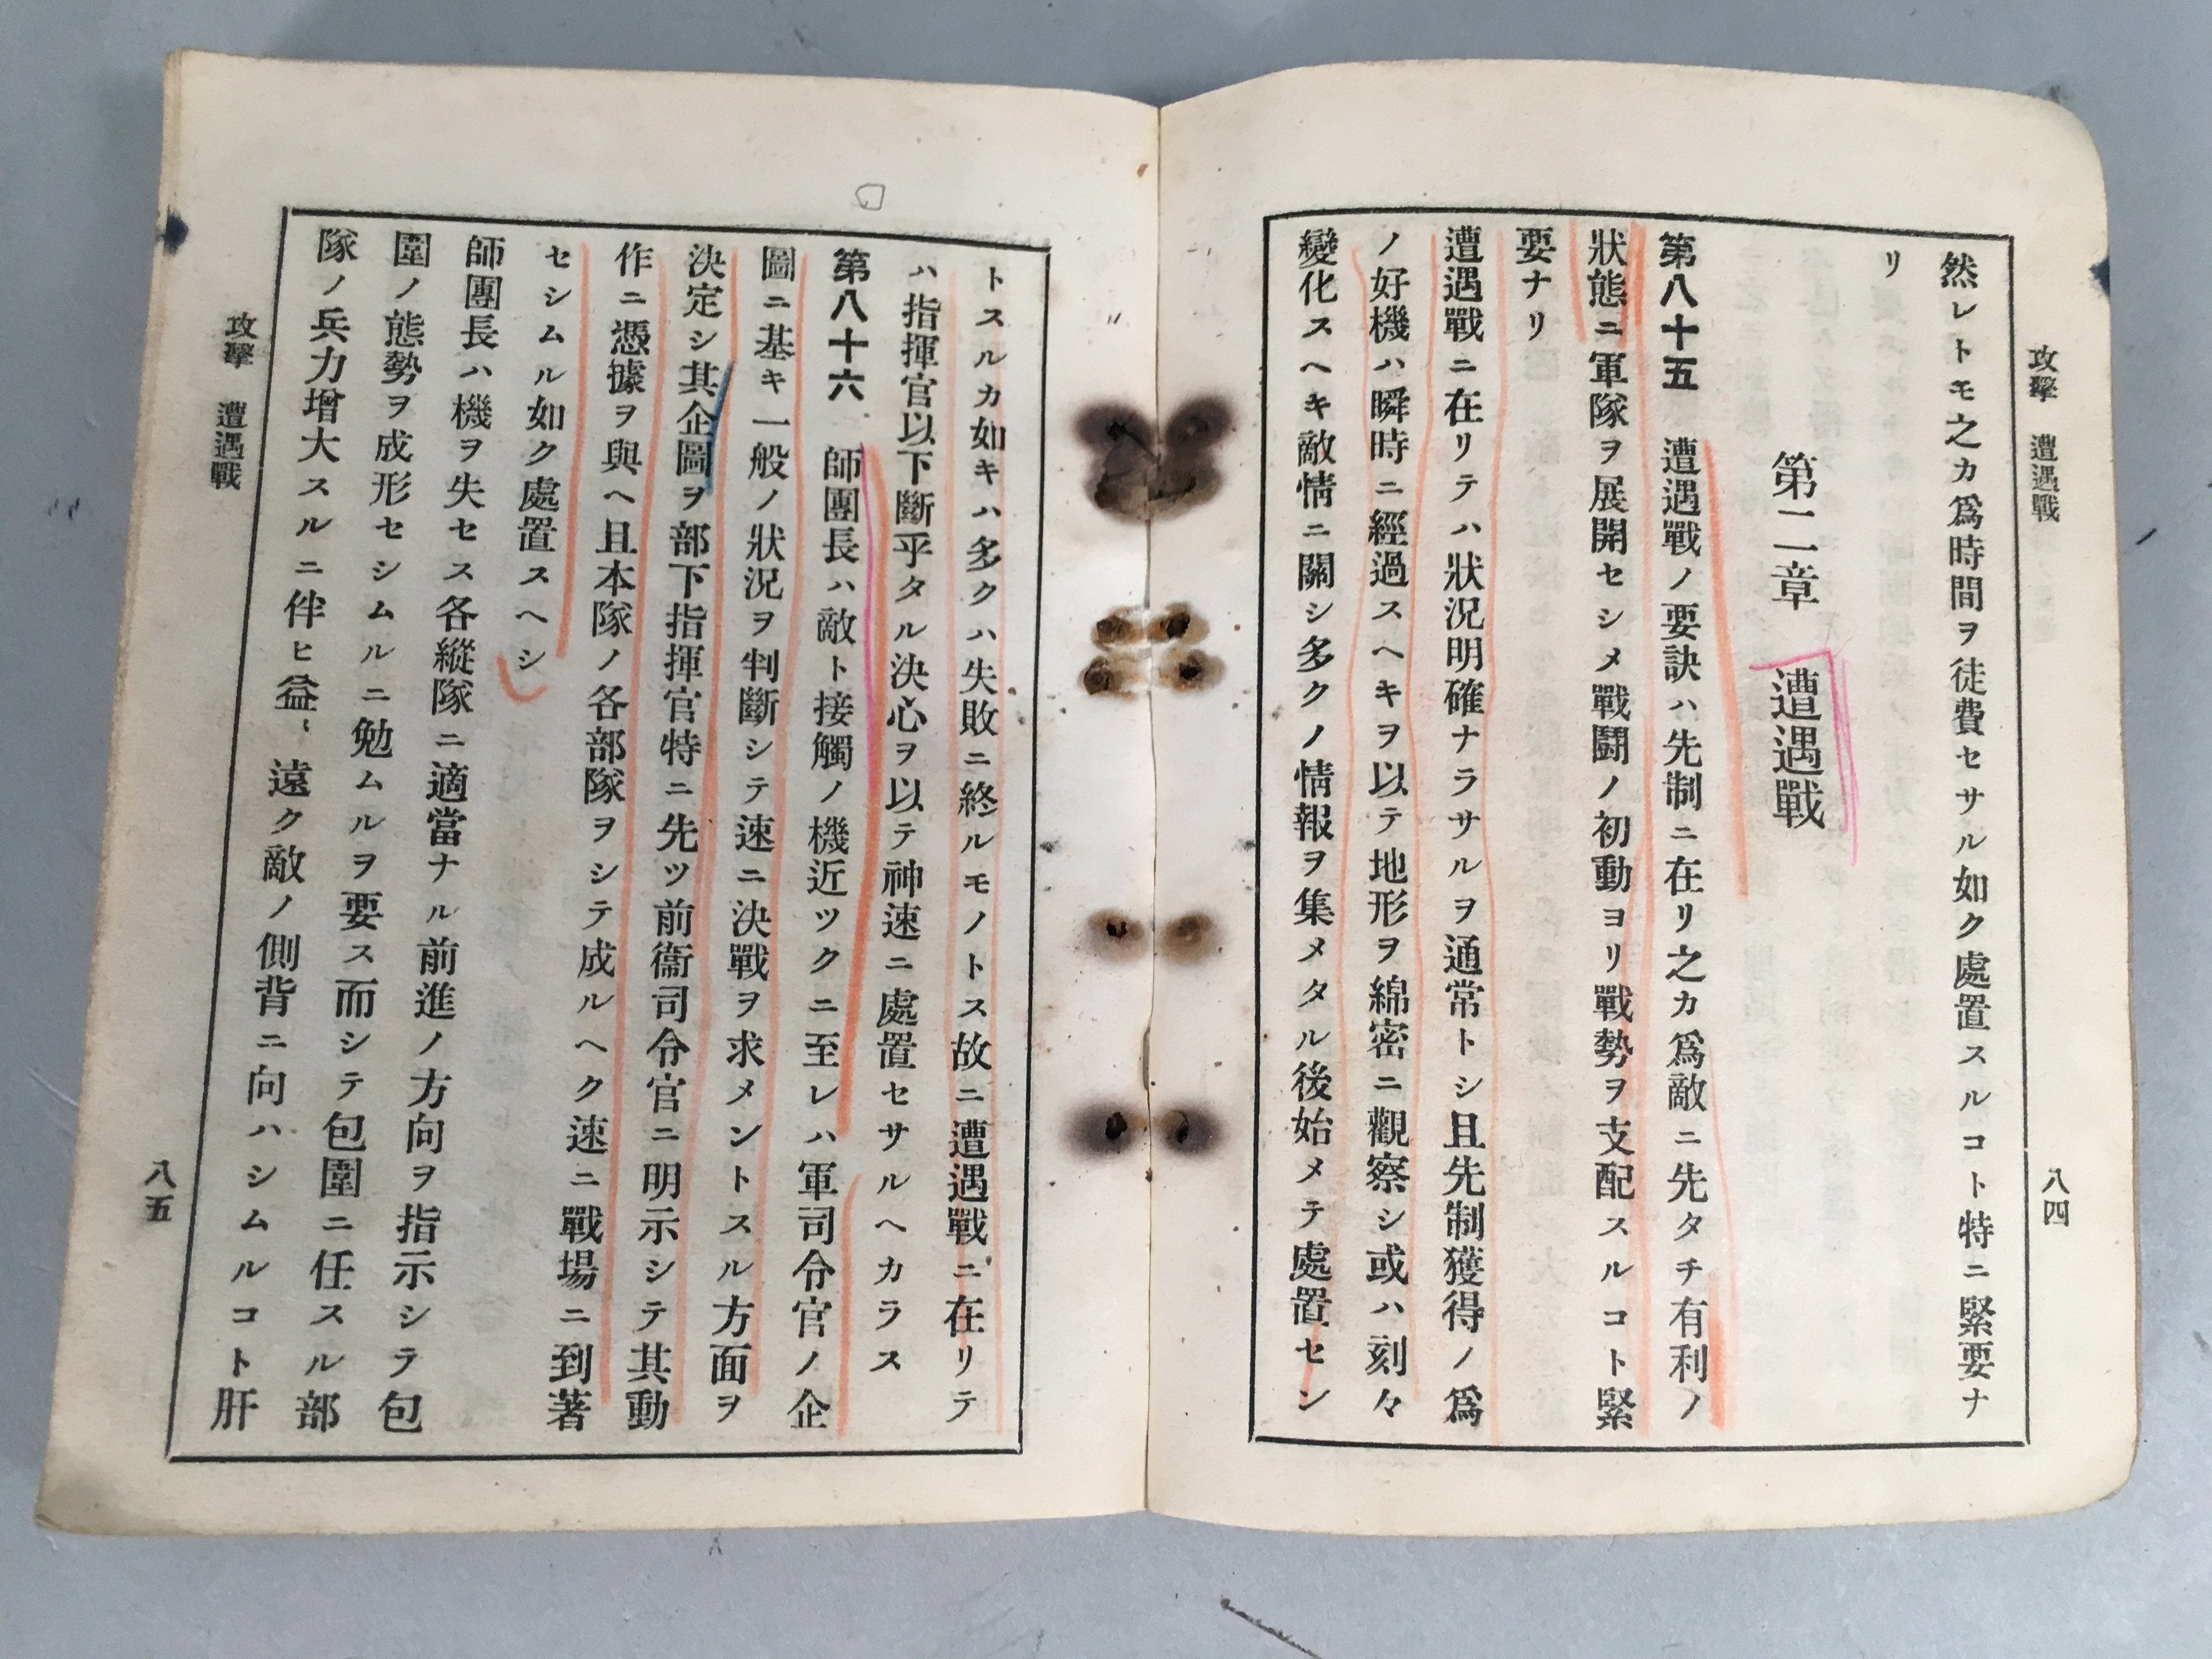 攻擊　遭遇戰
八四
然レトモ之カ爲時間ヲ徒費セサル如ク處置スルコト特ニ緊要ナ
リ
第二章　遭遇戰
第八十五　遭遇戰ノ要訣ハ先制ニ在リ之カ爲敵ニ先タチ有利ノ
狀態ニ軍隊ヲ展開セシメ戰鬪ノ初動ヨリ戰勢ヲ支配スルコト緊
要ナリ
遭遇戰ニ在リテハ狀況明確ナラサルヲ通常トシ且先制獲得ノ爲
ノ好機ハ瞬時ニ經過スヘキヲ以テ地形ヲ綿密ニ觀察シ或ハ刻々
變化スヘキ敵情ニ關シ多クノ情報ヲ集メタル後始メテ處置セン
トスルカ如キハ多クハ失敗ニ終ルモノトス故ニ遭遇戰ニ在リテ
ハ指揮官以下斷乎タル決心ヲ以テ神速ニ處置セサルヘカラス
第八十六　師團長ハ敵ト接觸ノ機近ツクニ至レハ軍司令官ノ企
圖ニ基キ一般ノ狀況ヲ判斷シテ速ニ決戰ヲ求メントスル方面ヲ
決定シ其企圖ヲ部下指揮官特ニ先ツ前衞司令官ニ明示シテ其動
作ニ憑據ヲ與ヘ且本隊ノ各部隊ヲシテ成ルヘク速ニ戰場ニ到著
セシムル如ク處置スヘシ
師團長ハ機ヲ失セス各縱隊ニ適當ナル前進ノ方向ヲ指示シテ包
圍ノ態勢ヲ成形セシムルニ勉ムルヲ要ス而シテ包圍ニ任スル部
隊ノ兵力增大スルニ伴ヒ益〻遠ク敵ノ側背ニ向ハシムルコト肝
攻擊　遭遇戰
八五